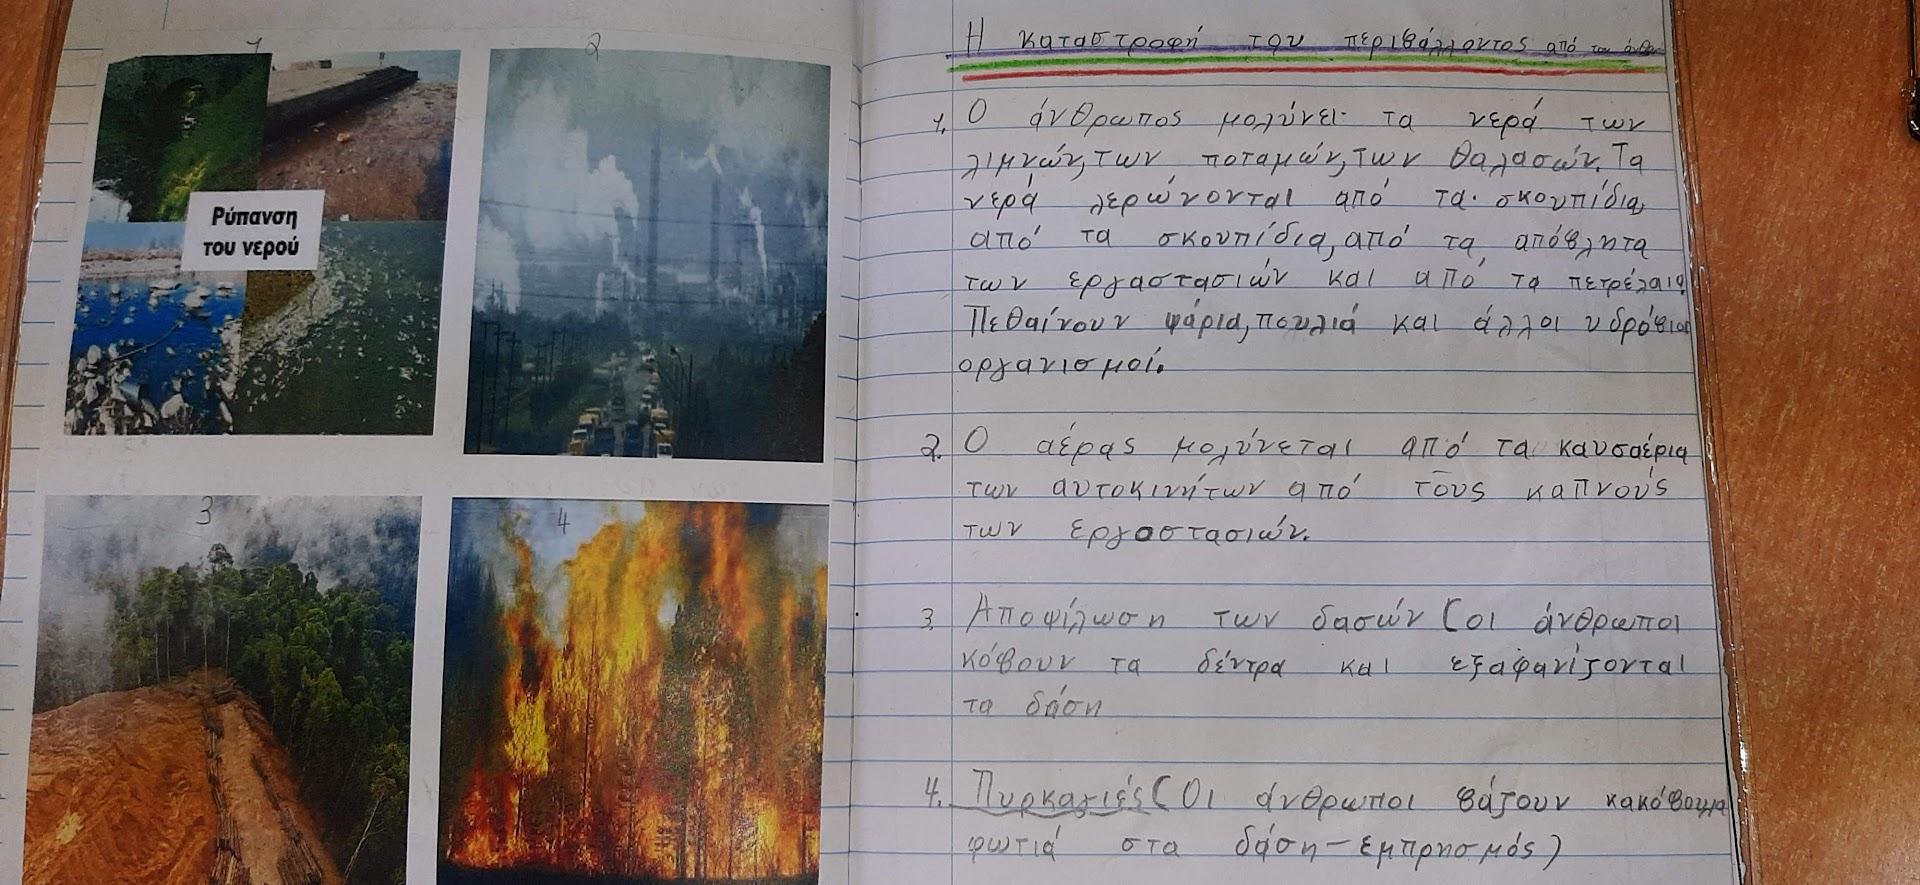 1
2
Ρύπανση
του νερού
3
4
Η καταστροφή του περιβάλλοντος από τον
1. Ο άνθρωπος μολύνει τα νερά των
λιμνών, των ποταμών, των θαλασών. Τα
νερά λερώνονται από τα σκουπίδια,
από τα σκουπίδια, από τα απόβλητα
των εργαστασιών και από τα πετρέλαια.
Πεθαίνουν ψάρια, πουλιά και άλλοι υδρόβιοι
οργανισμοί.
2. Ο αέρας μολύνεται από τα καυσαέρια
των αυτοκινήτων από τους καπνούς
των εργοστασιών.
3. Αποψίλωση των δασών (οι άνθρωποι
κόβουν τα δέντρα και εξαφανίζονται
τα δάση
4. Πυρκαγιές (Οι άνθρωποι βάζουν κακόβουλα
φωτιά στα δάση - εμπρησμός)